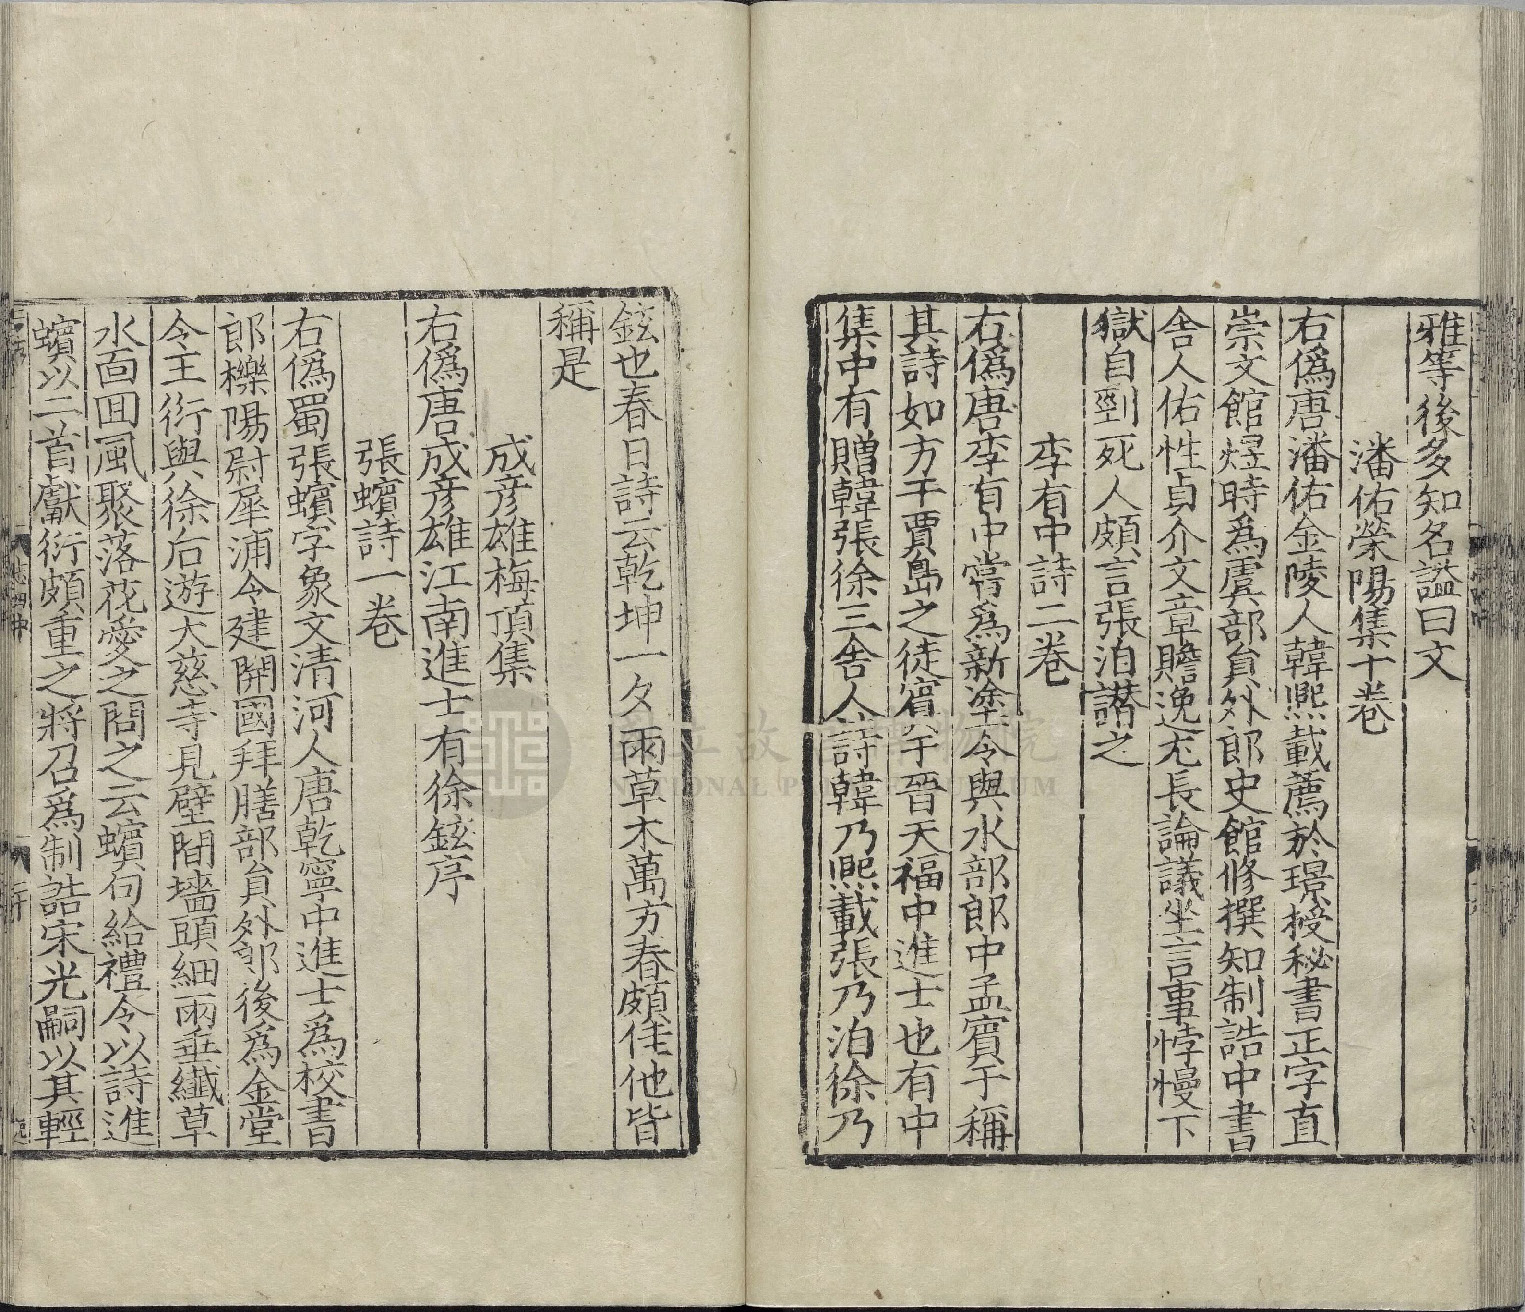 雅等後多知名謚曰文
潘佑榮陽集十卷
右僞唐潘佑金陵人韓熙載薦於璟授秘書正字直
崇文館煜時爲虞部員外郎史館修撰知制誥中書
舍人佑性貞介文章贍逸尤長論議坐言事悖慢下
獄自剄死人頗言張洎譖之
李有中詩二卷
右僞唐李有中嘗爲新塗令與水部郎中孟賓于稱
其詩如方干賈島之徒賓于晉天福中進士也有中
集中有贈韓張徐三舍人詩韓乃熙載張乃洎徐乃
鉉也春日詩云乾坤一夕雨草木萬方春頗佳他皆
稱是
成彦雄梅頂集
右僞唐成彦雄江南進士有徐鉉序
張蠙詩一卷
右僞蜀張蠙字象文清河人唐乾寧中進士爲校書
郎櫟陽尉犀浦令建開國拜膳部員外郎後爲金堂
令王衍與徐后遊大慈寺見壁間墻頭細雨垂纖草
水面囬風聚落花愛之問之云蠙句給禮令以詩進
蠙以二首獻衍頗重之將召爲制誥宋光嗣以其輕
國立故宮博物院
NATIONAL PALACE MUSEUM